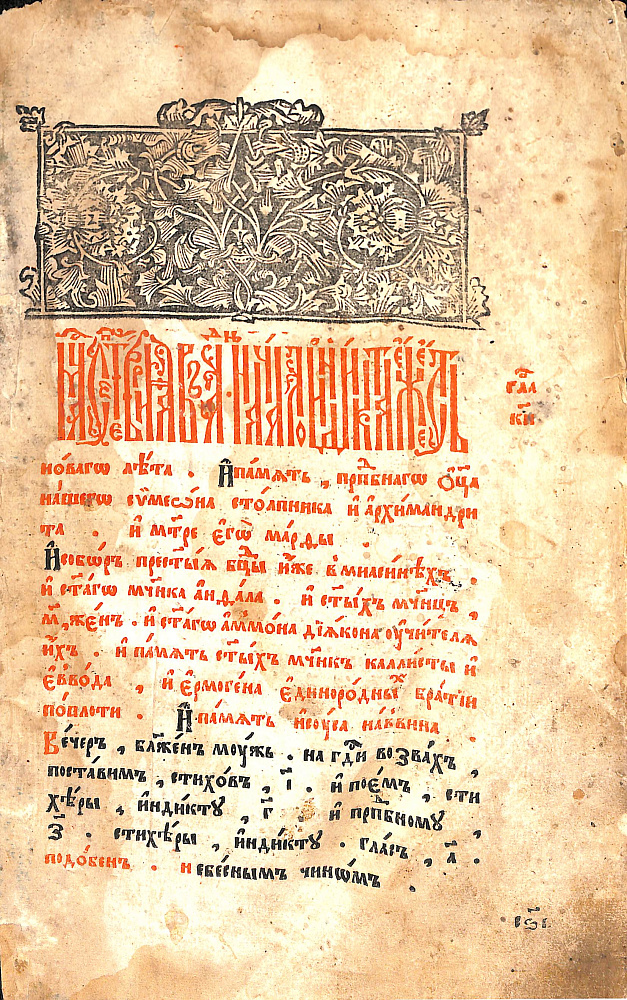 но́вагѡ лѣ́та . И҆ па́мѧть , прпⷣбнагѡ ѻ҆ц҃а
на́шегѡ сѷмеѡ́на сто́лпника и҆ а҆рхимандри
та . и҆ мт҃ре є҆гѡ̀ ма́рѳы .
И҆ собо́ръ прест҃ы́ѧ бц҃ы и҆́же. в̾миасинѣ́хъ .
и҆ ст҃а́гѡ мч҃нка а҆нда́ла . и҆ ст҃ы́хъ мч҃нцъ ,
м҃ , же́нъ . и҆ ст҃а́гѡ а҆ммо́на дїѧ́кона оу҆чи́телѧ
и҆́хъ . и҆ па́мѧть ст҃ы́хъ мч҃нкъ каллисты и҆
є҆вво́да , и҆ є҆рмоге́на є҆динорѡ́дныⷯ бра́тїи
по́плоти . И҆ па́мѧть и҆соу́са на́ввина .
Ве́черъ , бл҃же́нъ моу́жь . на гдⷭ҇и возва́хъ ,
поста́вимъ , стихо́въ , і҃ . и҆ пое́мъ , сти
хѣ́ры , и҆нди́кту , г҃ . и҆ прпⷣбному ,
з҃ . стихѣ́ры , и҆нди́кту . гла́съ , а҃ .
подо́бенъ . небе́снымъ чинѡ́мъ .